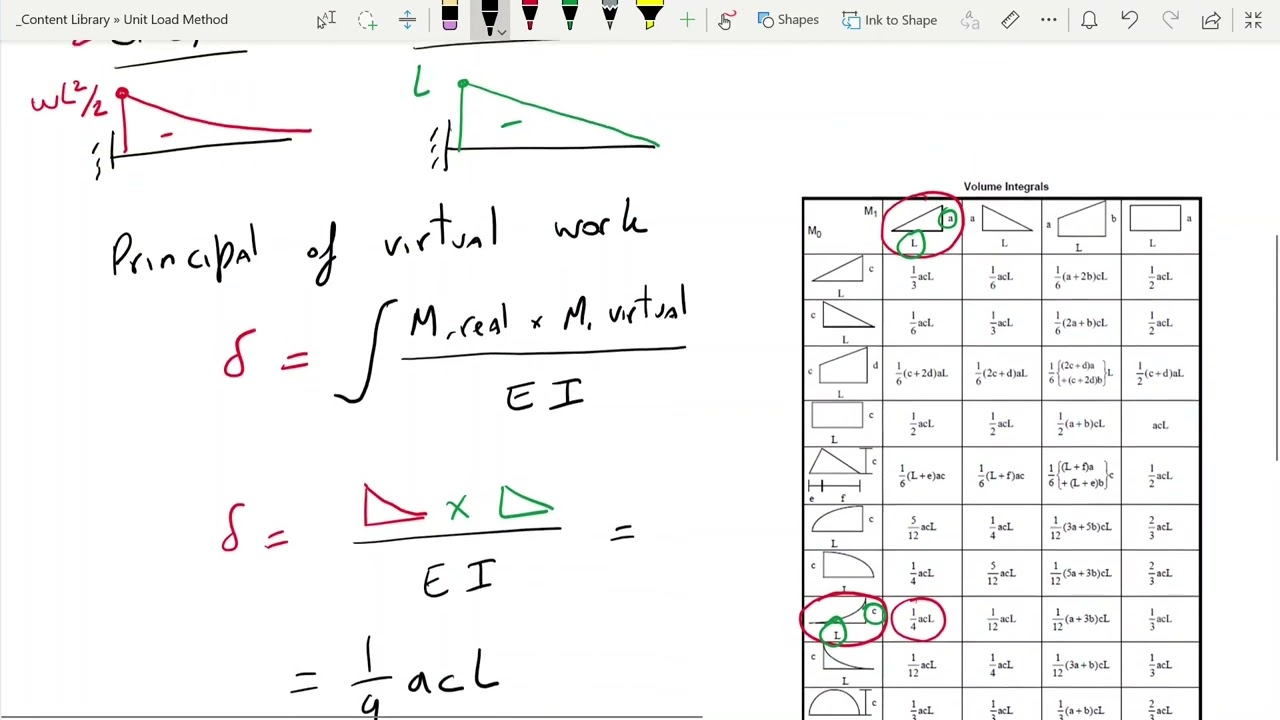 _Content Library » Unit Load Method
Shapes
Ink to Shape
wL²/2
-
L
-
Principal of virtual work
δ = ∫ M, real × M, virtual / E I
δ = × / E I =
= 1/4 acL
Volume Integrals
M₁ a a a b a
M₀ L L L L
c L 1/3 acL 1/6 acL 1/6 (a + 2b)cL 1/2 acL
c L 1/6 acL 1/3 acL 1/6 (2a + b)cL 1/2 acL
c d L 1/6 (c + 2d)aL 1/6 (2c + d)aL 1/6 {(2c + d)a + (c + 2d)b}L 1/2 (c + d)aL
c L 1/2 acL 1/2 acL 1/2 (a + b)cL acL
c e f 1/6 (L + e)ac 1/6 (L + f)ac 1/6 {(L + f)a + (L + e)b}c 1/2 acL
c L 5/12 acL 1/4 acL 1/12 (3a + 5b)cL 2/3 acL
c L 1/4 acL 5/12 acL 1/12 (5a + 3b)cL 2/3 acL
c L 1/4 acL 1/12 acL 1/12 (a + 3b)cL 1/3 acL
c L 1/12 acL 1/4 acL 1/12 (3a + b)cL 1/3 acL
c 1/3 acL 1/3 acL 1/3 (a + b)cL 2/3 acL